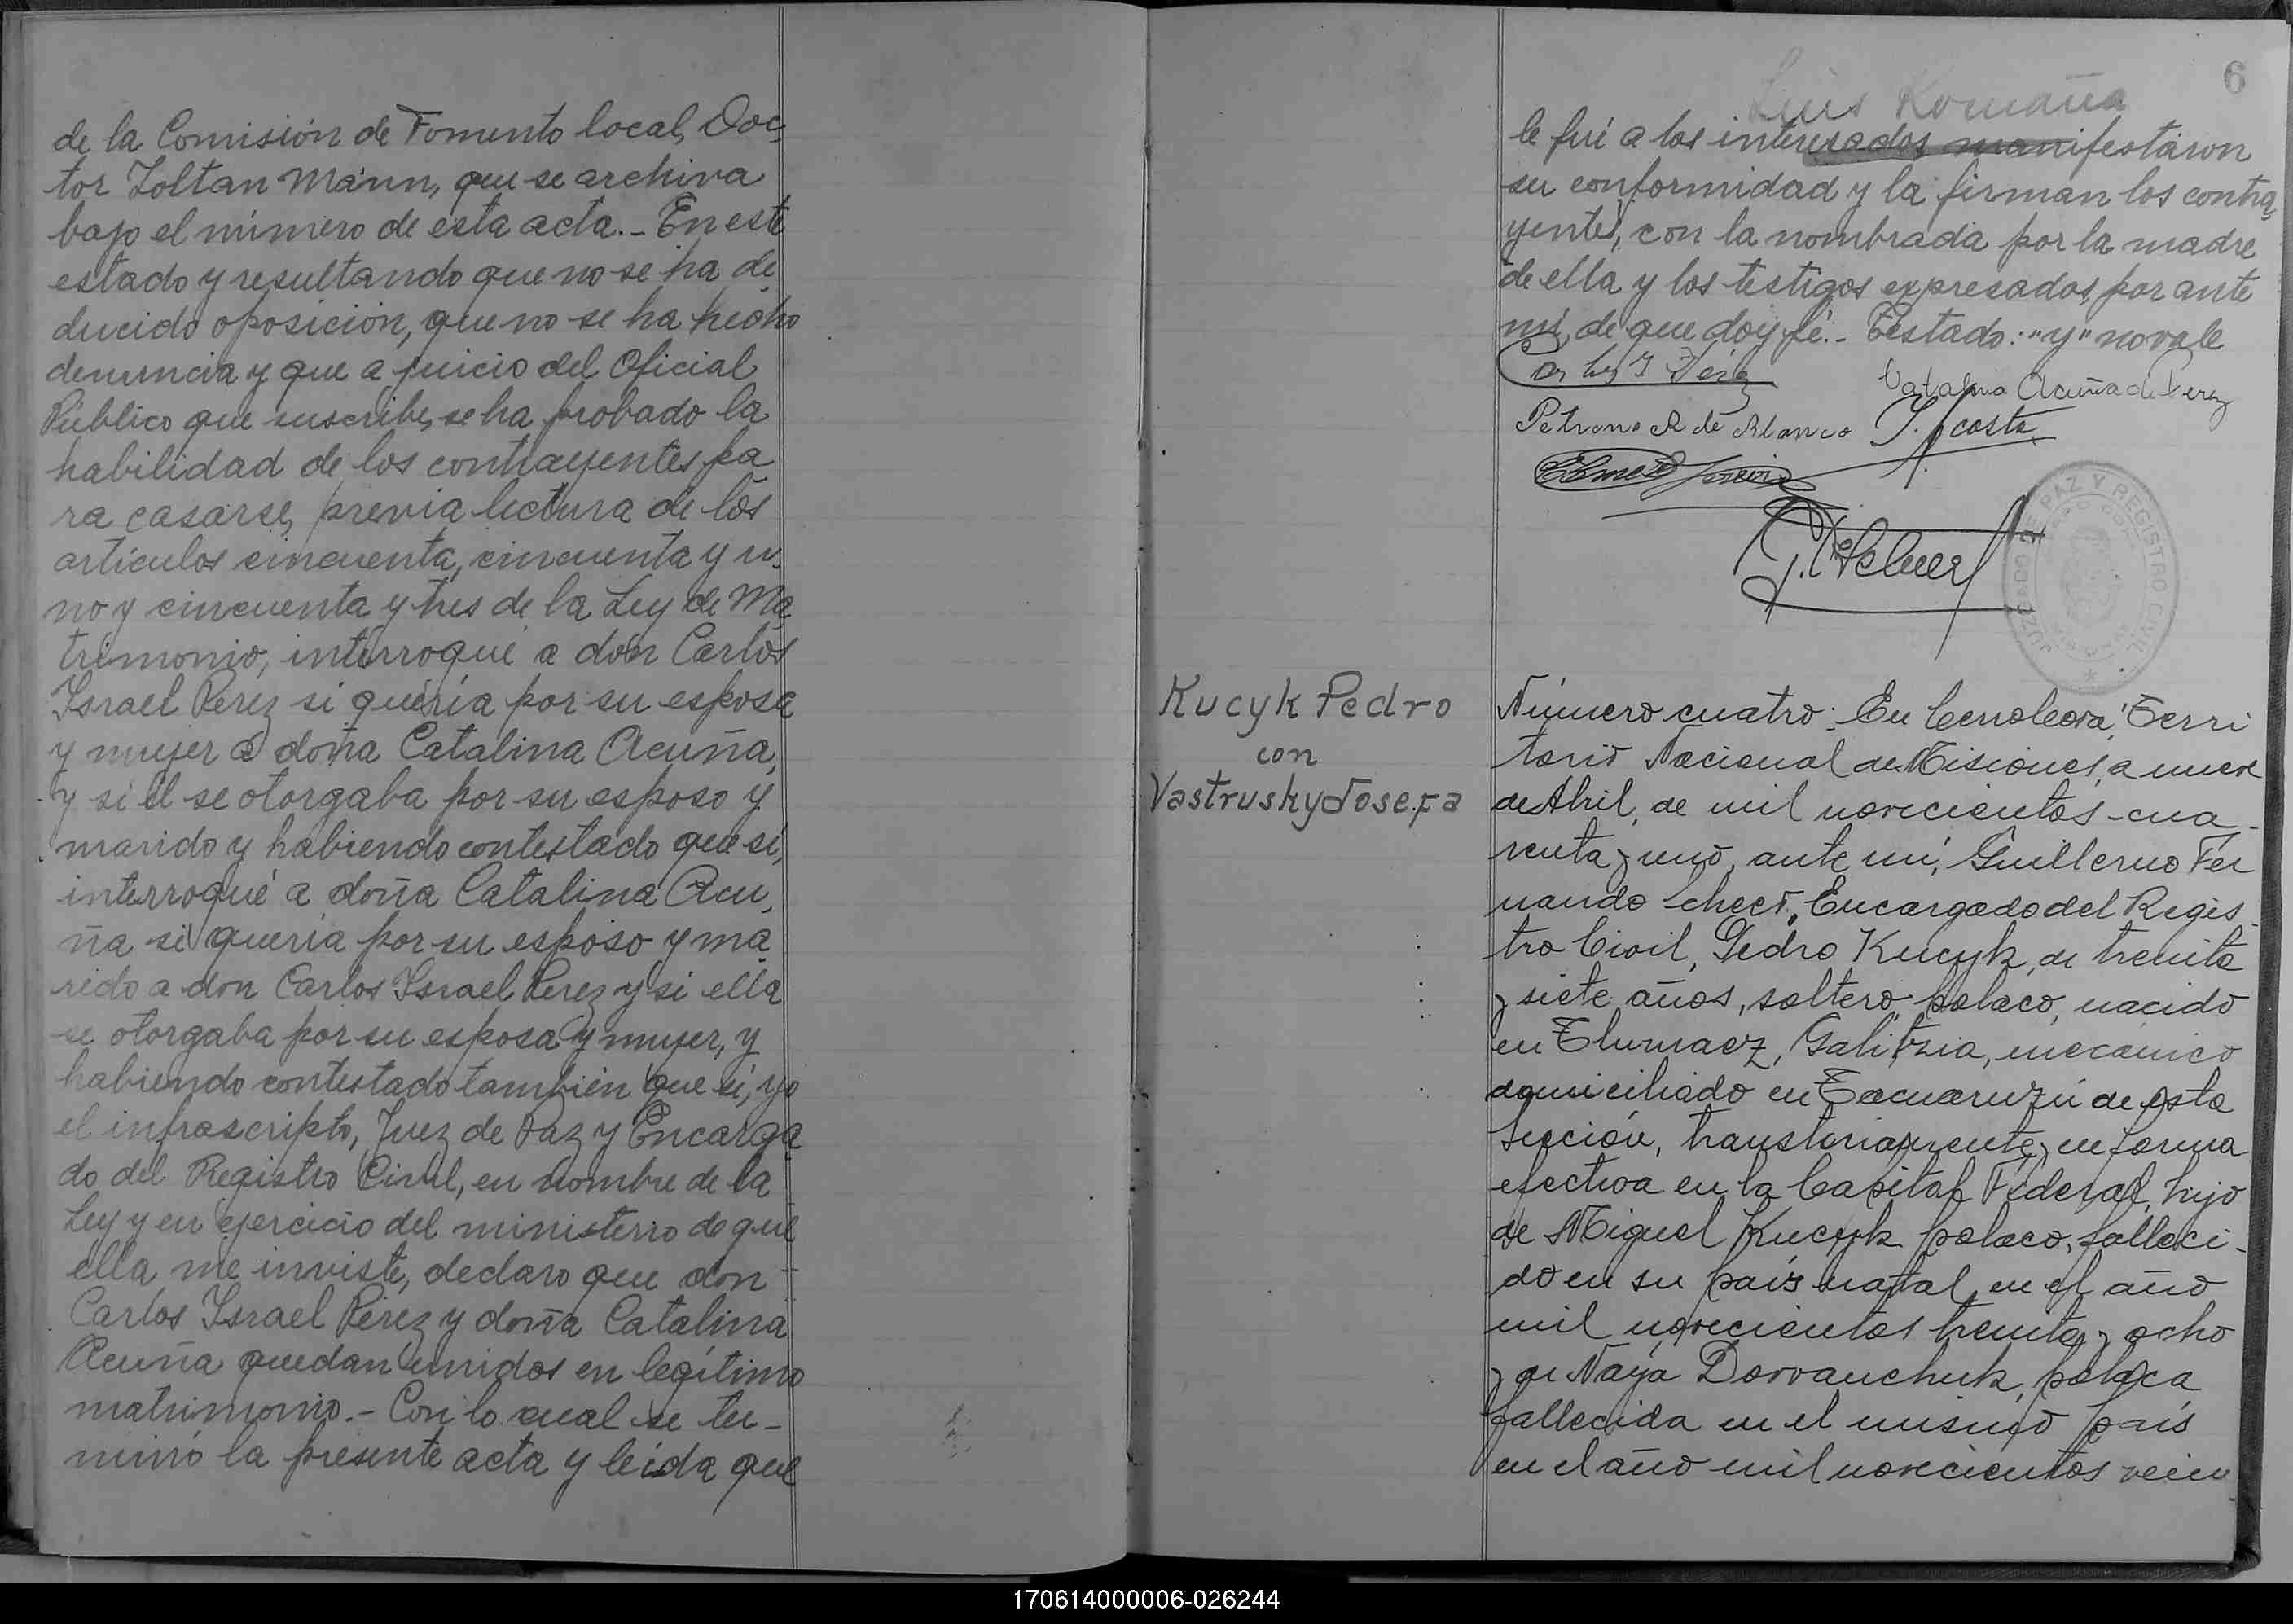 de la Comisión de Fomento local, Doc-
tor Zoltan Mann, que se archiva
bajo el número de esta acta.- En este
estado y resultando que no se ha de-
ducido oposición, que no se ha hecho
denuncia y que a juicio del Oficial
Público que suscribe, se ha probado la
habilidad de los contrayentes pa-
ra casarse, previa lectura de los
artículos cincuenta, cincuenta y u-
no y cincuenta y tres de la Ley de Ma-
trimonio, interrogué a don Carlos
Israel Perez si quería por su esposa
y mujer a doña Catalina Acuña,
y si él se otorgaba por su esposo y
marido y habiendo contestado que sí,
interrogué a doña Catalina Acu-
ña si quería por su esposo y ma-
rido a don Carlos Israel Perez y si ella
se otorgaba por su esposa y mujer, y
habiendo contestado también que sí, yo
el infrascripto, Juez de Paz y Encarga-
do del Registro Civil, en nombre de la
Ley y en ejercicio del ministerio de que
ella me inviste, declaro que don
Carlos Israel Pérez y doña Catalina
Acuña quedan unidos en legítimo
matrimonio.- Con lo cual se ter-
minó la presente acta y leída que
6
Luis Romaña
le fué a los interesados manifestaron
su conformidad y la firman los contra-
yentes, con la nombrada por la madre
de ella y los testigos expresados, por ante
mí, de que doy fé.- Testado: "y" no vale
Carlos I Pérez
Catalina Acuña de Perez
Petrona A de Blanco J. Acosta
JUZGADO DE PAZ Y REGISTRO CIVIL
Kucyk Pedro
con
Vastrusky Josefa
Número cuatro: En Cerro Corá, Terri-
torio Nacional de Misiones, a nueve
de Abril, de mil novecientos cua-
renta y uno, ante mí, Guillermo Fer-
nando Encargado del Regis-
tro Civil, Pedro Kucyk, de treinta
y siete años, soltero, polaco, nacido
en Tlumacz, Galitzia, mecánico
domiciliado en Tacuaruzú de esta
Sección, transitoriamente y en forma
efectiva en la Capital Federal, hijo
de Miguel Kucyk polaco, falleci-
do en su país natal en el año
mil novecientos treinta y ocho
y de Naya Dorvanchuk, polaca
fallecida en el mismo país
en el año mil novecientos vein
170614000006-026244